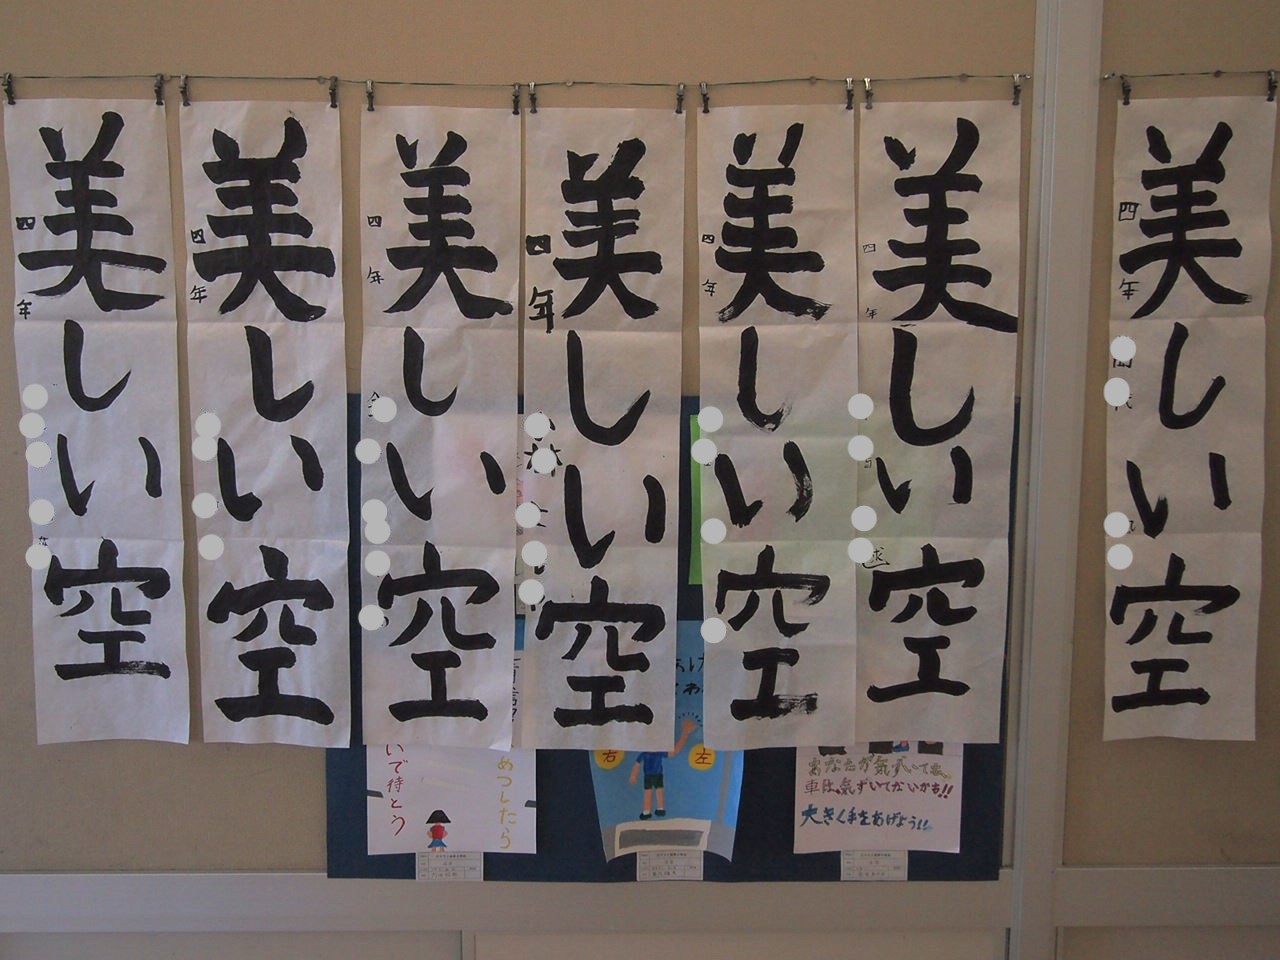 美しい空
四年
美しい空
四年
美しい空
四年
美しい空
四年
美しい空
四年
美しい空
四年
美しい空
四年
いで待とう
めつしたら
右
左
あなたが気ずいても、
車は、気ずいてないかも!!
大きく手をあげよう!!